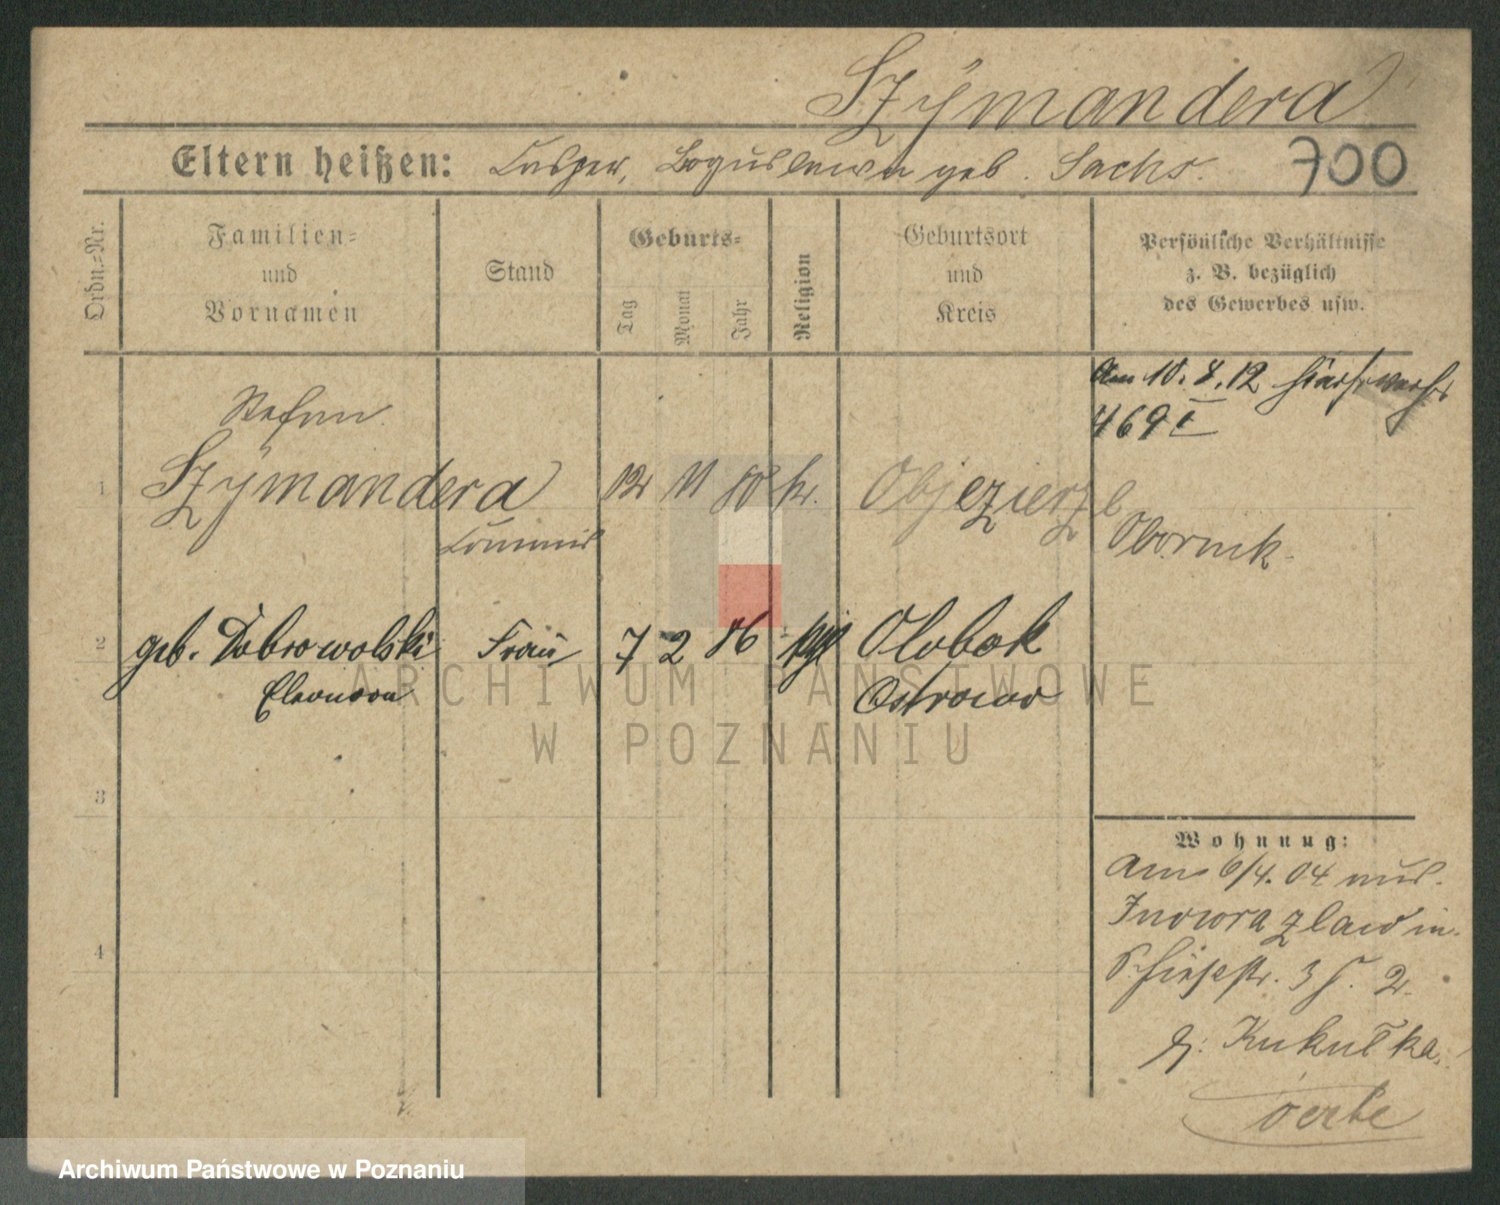 Szymandera
Eltern heißen: Casper, Boguslawa geb. Sachs.
700
Ordn.=Nr.
Familien=
und
Vornamen
Stand
Geburts=
Tag
Monat
Jahr
Religion
Geburtsort
und
Kreis
Persönliche Verhältnisse
z. B. bezüglich
des Gewerbes usw.
Am 10. 8. 12
469 I
Stefan
1 Szymandera 12 11 80 k. Objezierze
Commis Obornik
2 geb. Dobrowolski Frau 7 2 86 Olobok
Eleonora Ostrowo
3
Wohnung:
Am 6/4. 04 aus
Inowrazlaw in
3
4
Kukulka
ARCHIWUM PAŃSTWOWE
W POZNANIU
Archiwum Państwowe w Poznaniu